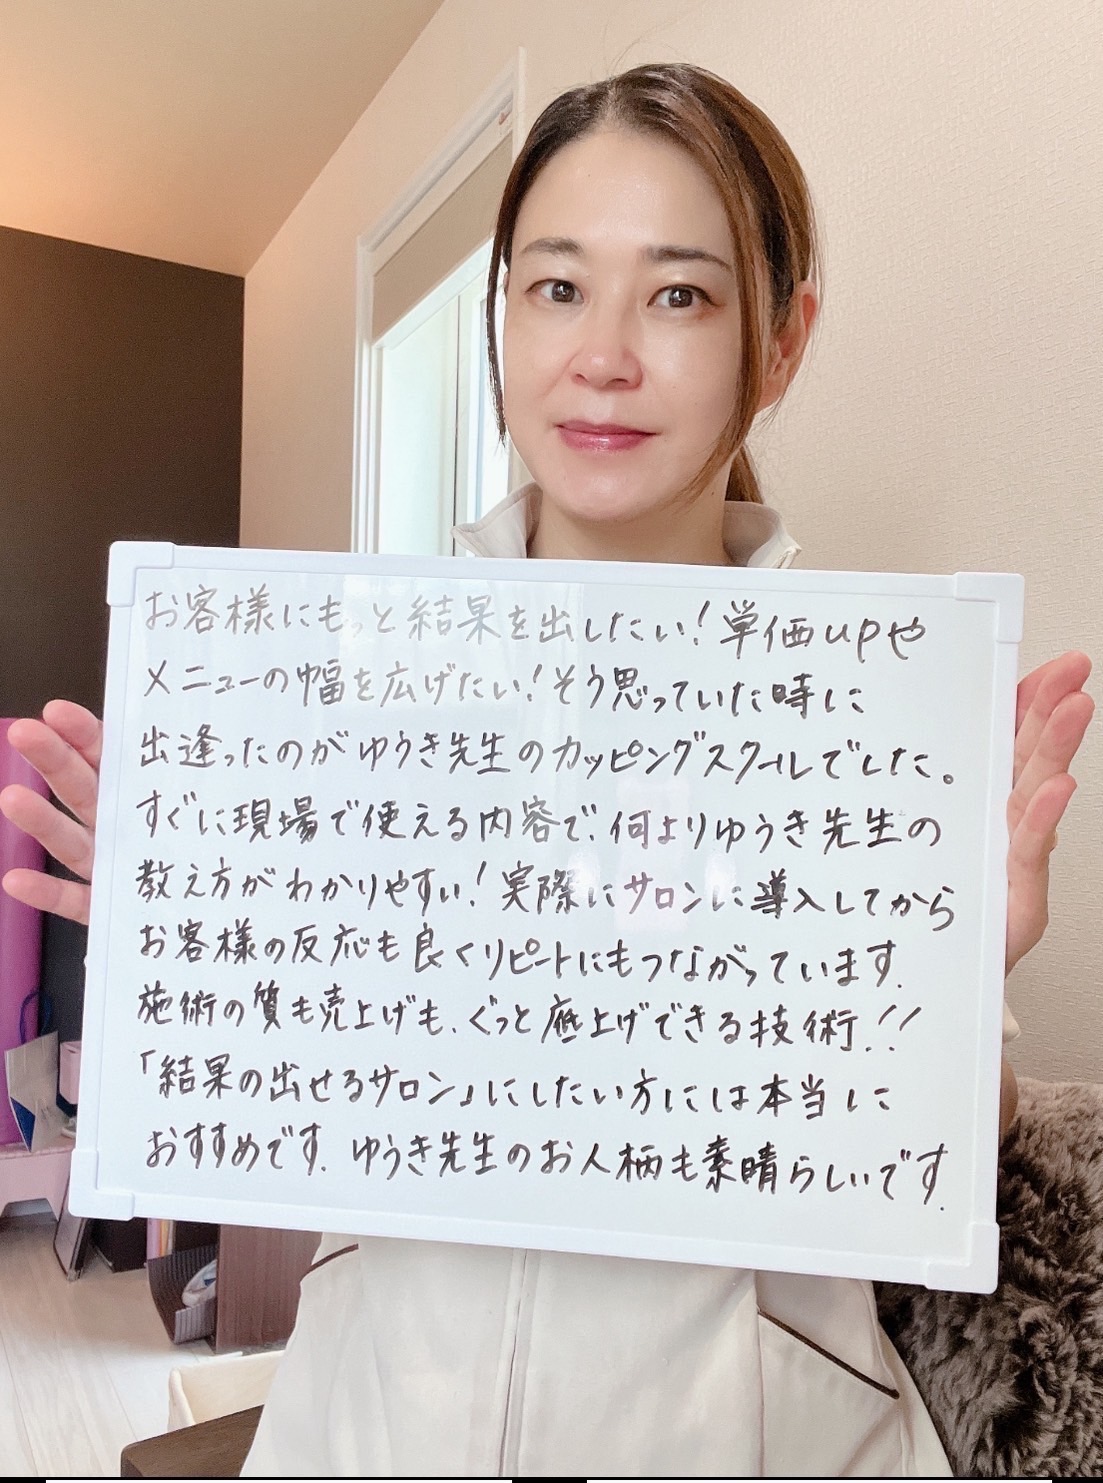 お客様にもっと結果を出したい！単価upや
メニューの幅を広げたい！そう思っていた時に
出逢ったのがゆうき先生のカッピングスクールでした。
すぐに現場で使える内容で、何よりゆうき先生の
教え方がわかりやすい！実際にサロンに導入してから
お客様の反応も良くリピートにもつながっています.
施術の質も売上げも、ぐっと底上げできる技術！！
「結果の出せるサロン」にしたい方には本当に
おすすめです. ゆうき先生のお人柄も素晴らしいです.